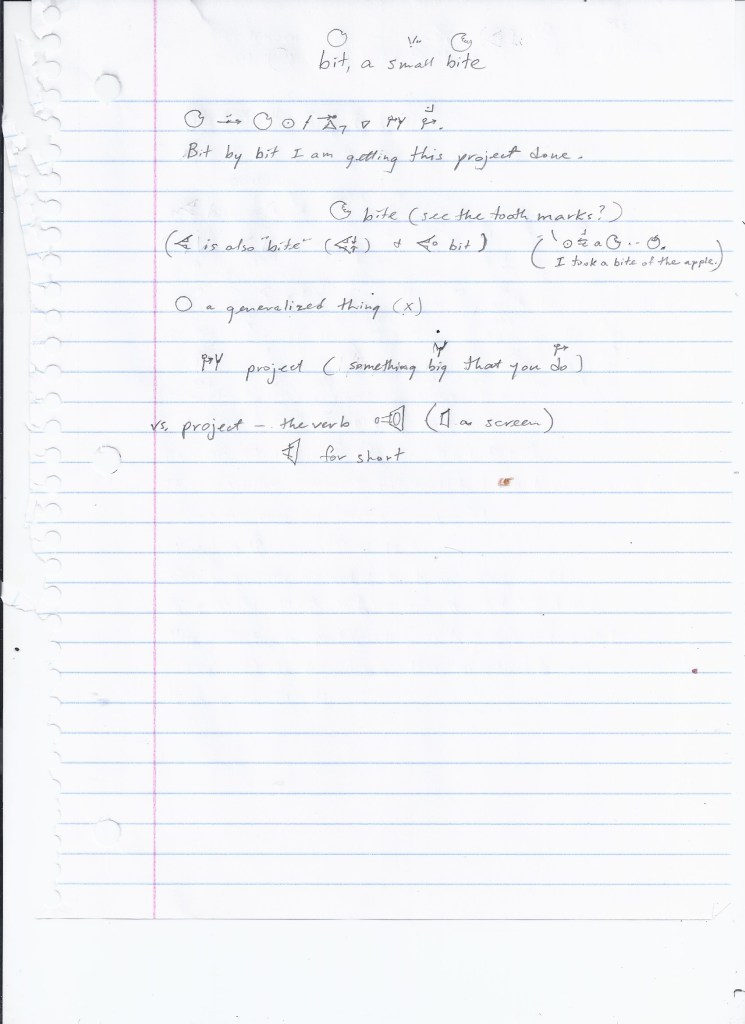 bit, a small bite
Bit by bit I am getting this project done.
bite (see the tooth marks?)
( is also "bite" ( ) & bit) ( a ...
I took a bite of the apple.)
a generalized thing (x)
project (something big that you do)
vs. project - the verb ( a screen)
for short